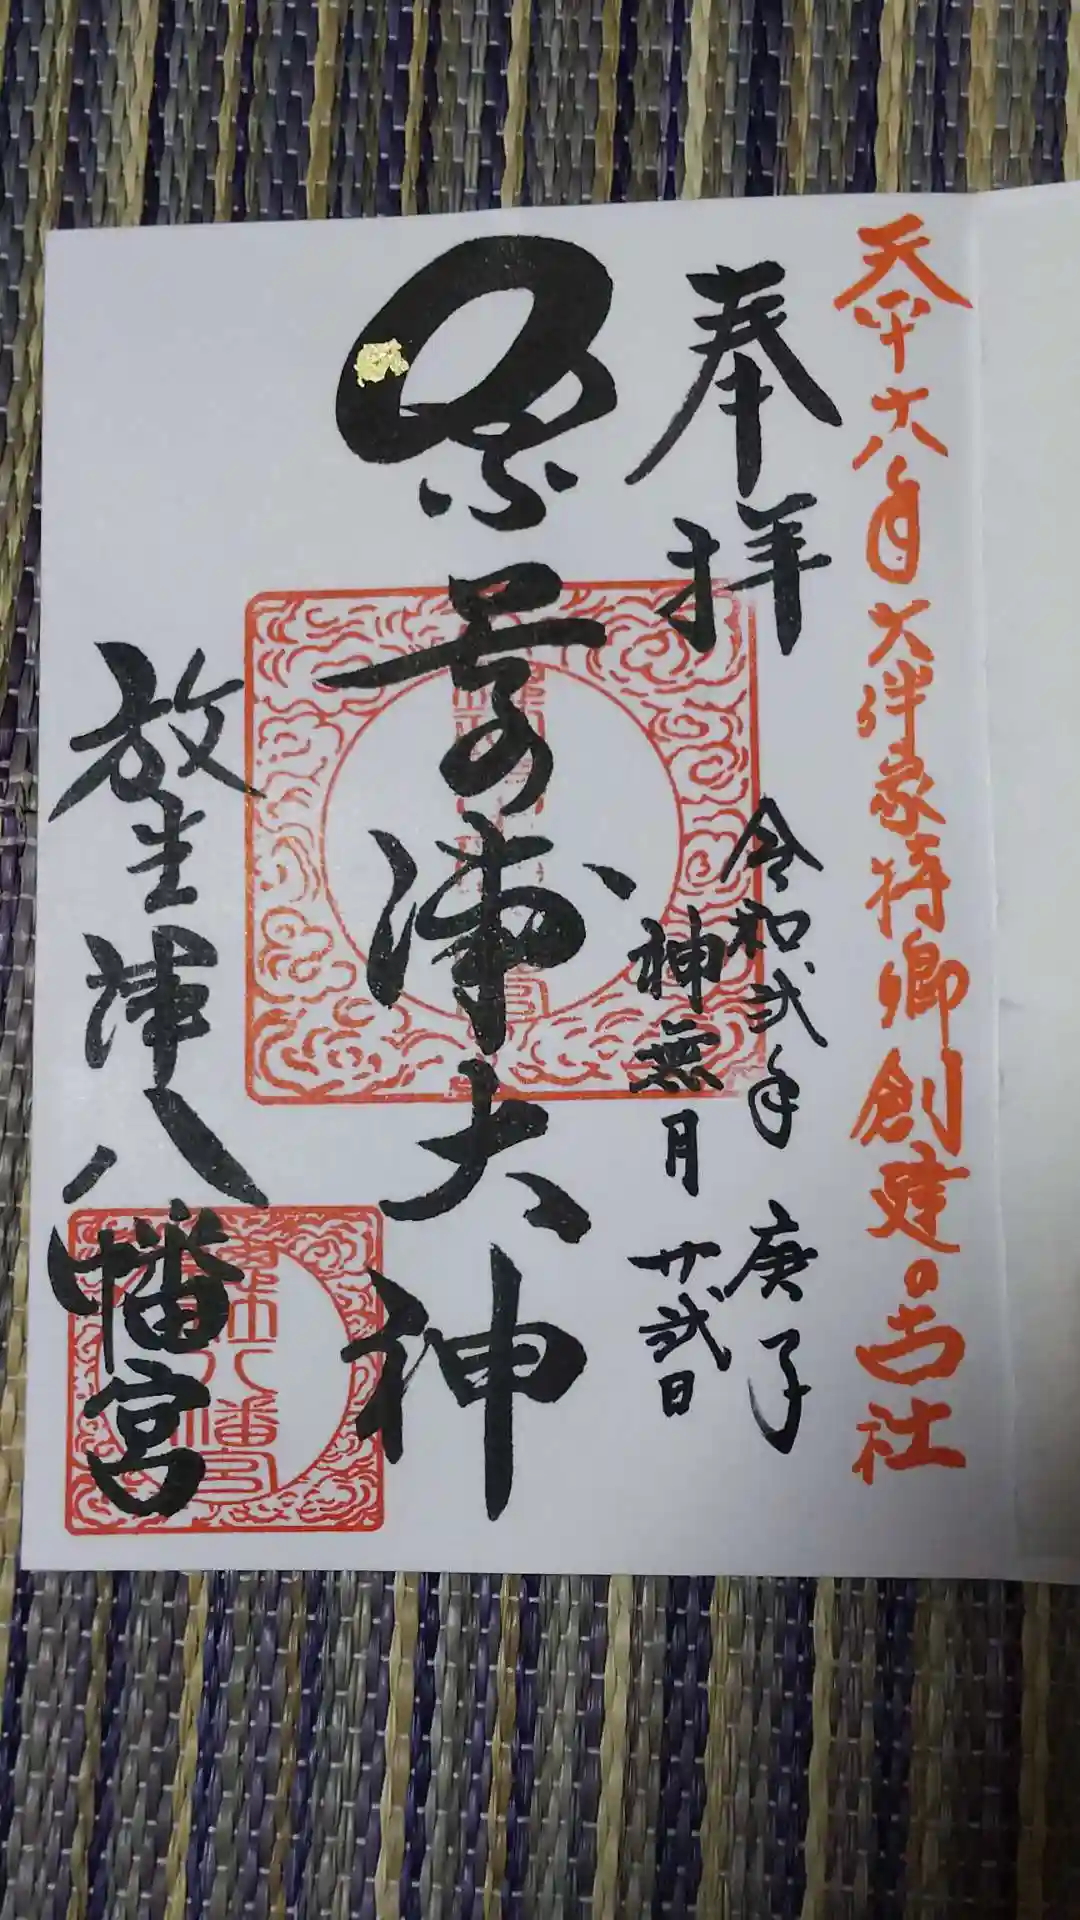 天平十八年 大伴家持卿創建の古社
奉拝
令和弐年 庚子
神無月 廿弐日
奈呉の浦大神
放生津八幡宮